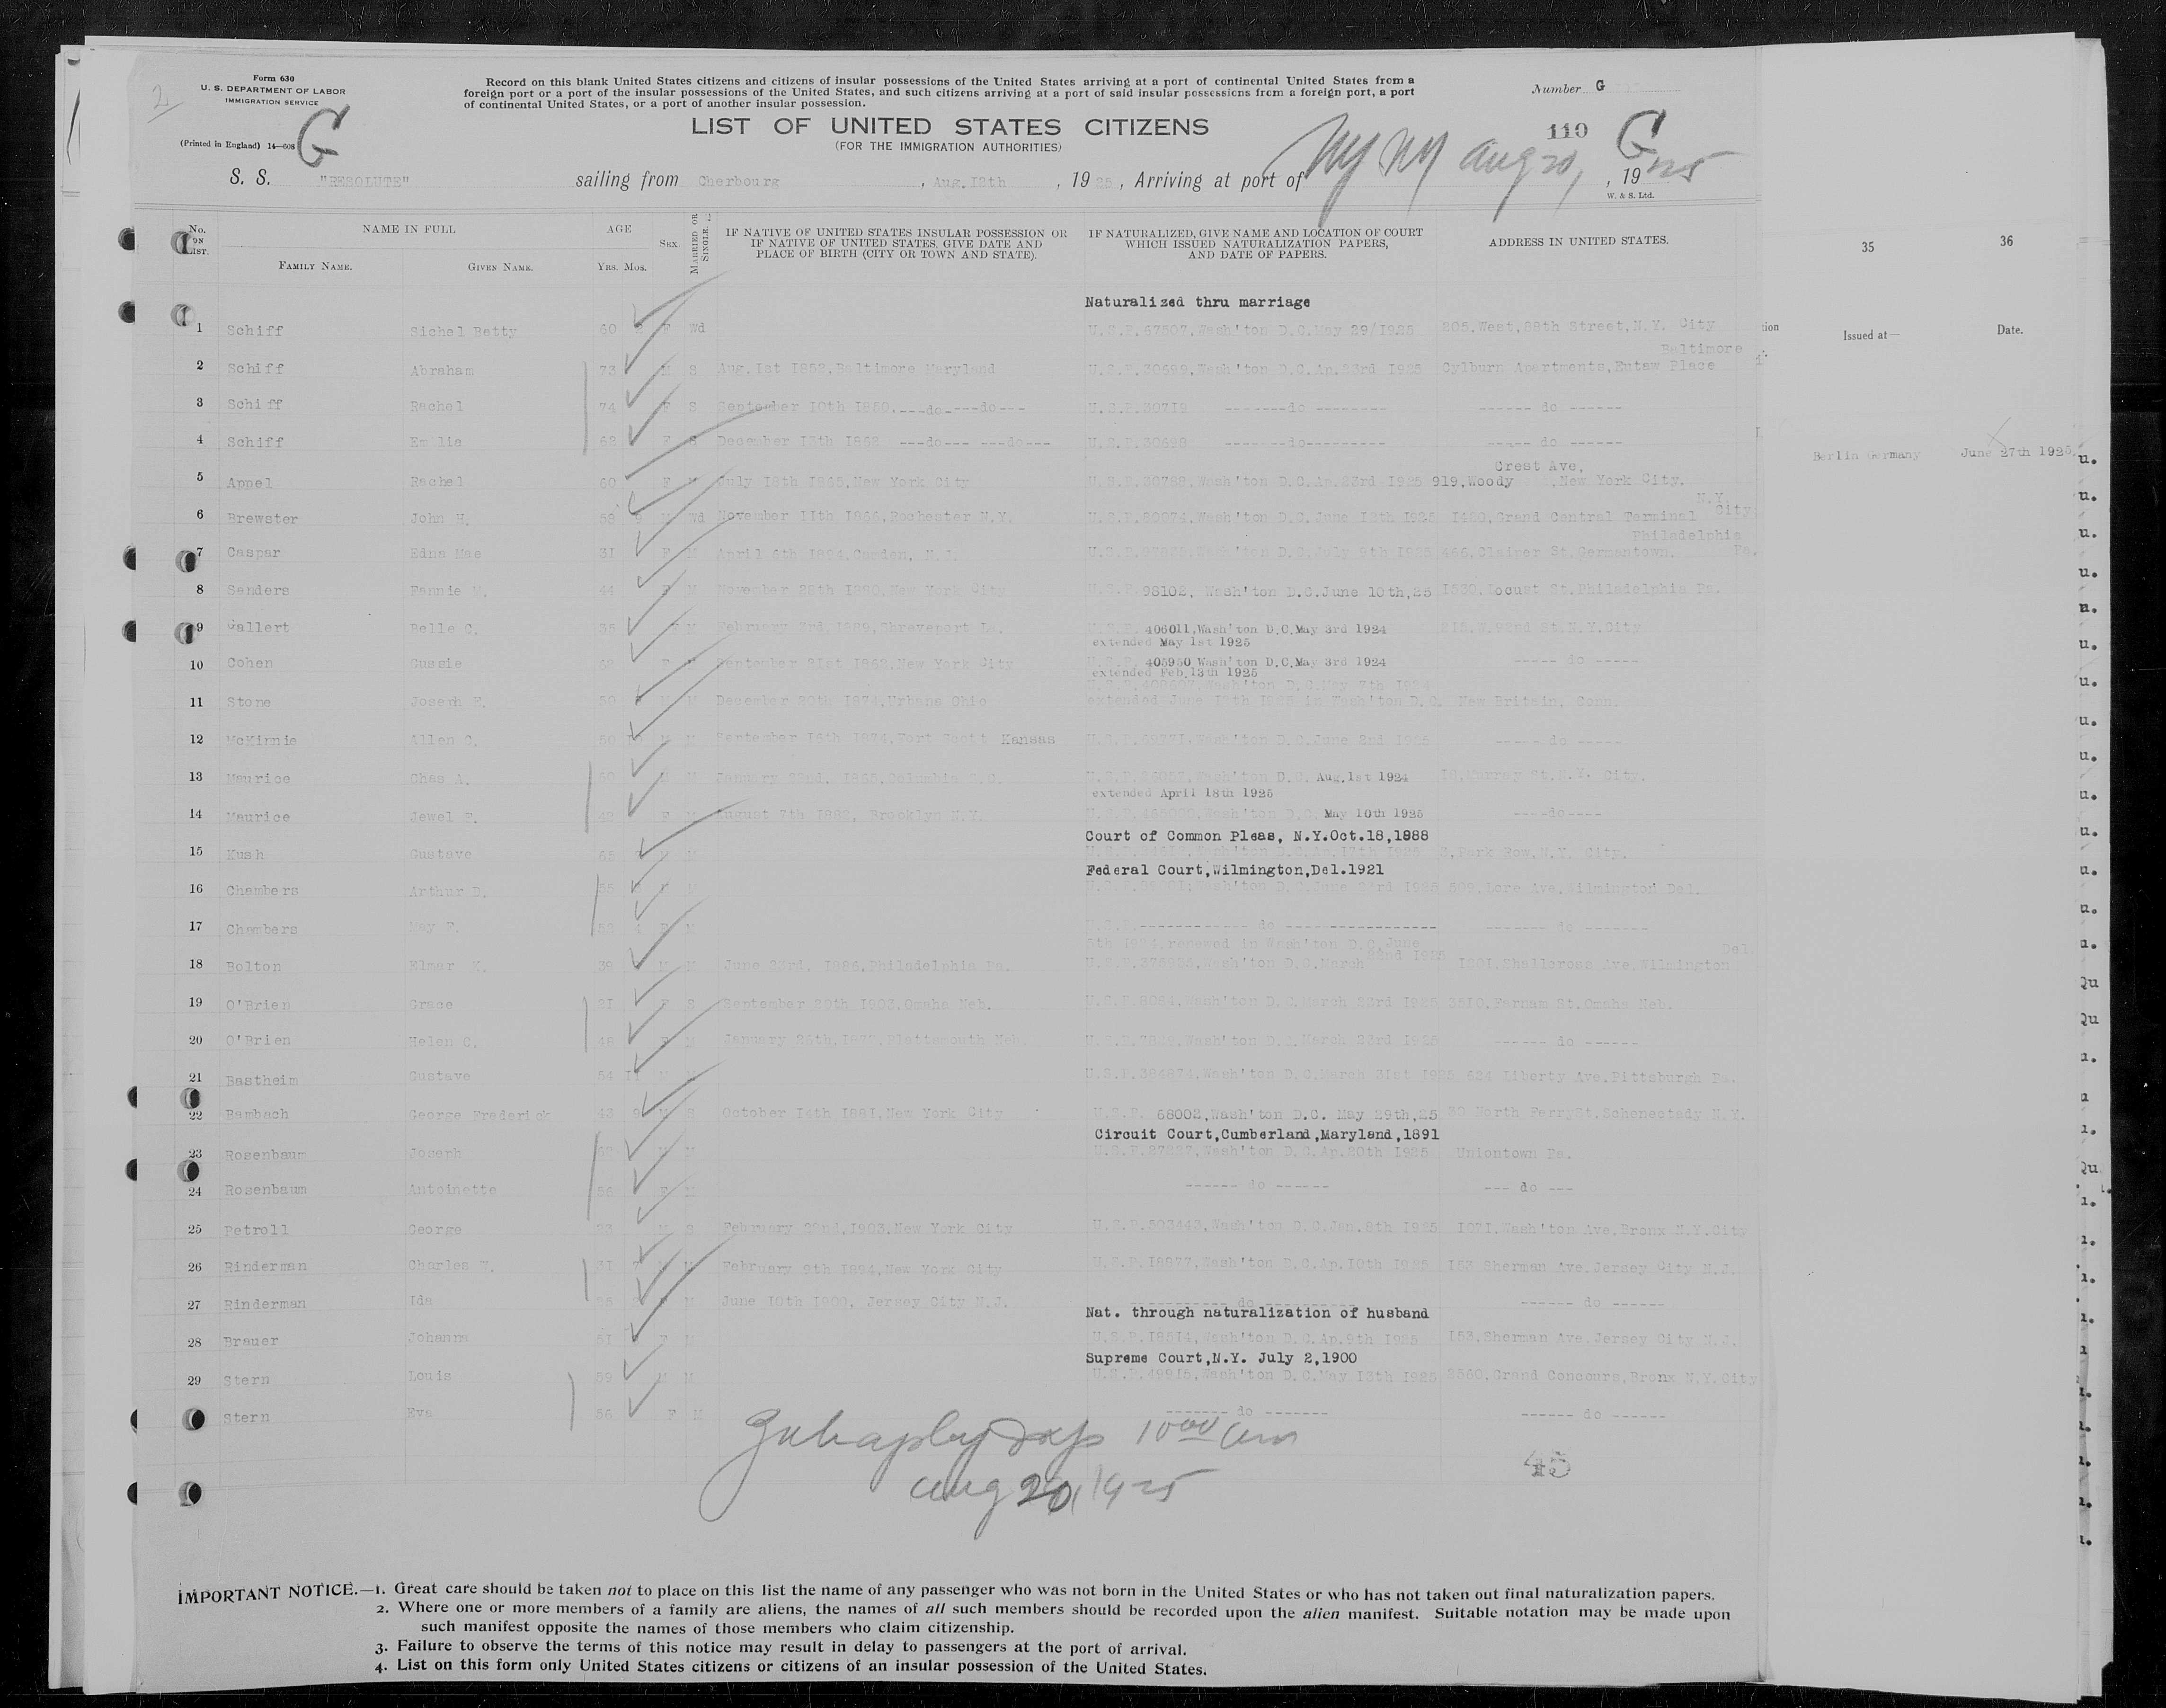 2
Form 630
U. S. DEPARTMENT OF LABOR
IMMIGRATION SERVICE
(Printed in England) 14—608
G
Record on this blank United States citizens and citizens of insular possessions of the United States arriving at a port of continental United States from a
foreign port or a port of the insular possessions of the United States, and such citizens arriving at a port of said insular possessions from a foreign port, a port
of continental United States, or a port of another insular possession.
Number G
LIST OF UNITED STATES CITIZENS
(FOR THE IMMIGRATION AUTHORITIES)
110 G
S. S. "RESOLUTE" sailing from Cherbourg, Aug.12th, 1925, Arriving at port of NY NY Aug 20, 1925
W. & S. Ltd.
No. ON LIST. NAME IN FULL AGE SEX. MARRIED OR SINGLE. IF NATIVE OF UNITED STATES INSULAR POSSESSION OR IF NATIVE OF UNITED STATES, GIVE DATE AND PLACE OF BIRTH (CITY OR TOWN AND STATE). IF NATURALIZED, GIVE NAME AND LOCATION OF COURT WHICH ISSUED NATURALIZATION PAPERS, AND DATE OF PAPERS. ADDRESS IN UNITED STATES. 35 36
FAMILY NAME. GIVEN NAME. YRS. MOS.
Issued at— Date.
Naturalized thru marriage
1 Schiff Sichel Betty 60 F Wd U.S.P.67507,Wash'ton D.C.May 29/1925 205,West,88th Street,N.Y. City
Baltimore
2 Schiff Abraham 73 M S Aug.1st 1852,Baltimore Maryland U.S.P.30699,Wash'ton D.C.Ap.23rd 1925 Cylburn Apartments,Eutaw Place
3 Schiff Rachel 74 F S September 10th 1850.---do----do--- U.S.P.30719 -------do -------- ------ do ------
4 Schiff Emilia 62 F S December 13th 1862 ---do--- ---do--- U.S.P.30698 -------do--------- ----- do ------
Berlin Germany June 27th 1925
Crest Ave,
5 Appel Rachel 60 F M July 18th 1865,New York City U.S.P.30788,Wash'ton D.C.Ap.23rd 1925 919,Woody ,New York City.
N.Y.
6 Brewster John H. 58 9 M Wd November 11th 1866,Rochester N.Y. U.S.P.80074,Wash'ton D.C.June 12th 1925 1480,Grand Central Terminal City
Philadelphia
7 Caspar Edna Mae 31 F M April 6th 1894,Camden, N.J. Wash'ton D.C.July 9th 1925 466,Clapier St.Germantown. Pa.
8 Sanders Fannie 44 F M November 28th 1880,New York City U.S.P.98102, Wash'ton D.C.June 10th,25 1520,Locust St.Philadelphia Pa.
9 Wallert Belle C. 36 M February 3rd 1889,Shreveport La. 406011,Wash'ton D.C.May 3rd 1924 N.Y.City
extended May 1st 1925
10 Cohen Gussie 62 F September 21st 1862,New York City U.S.P. 405950 Wash'ton D.C.May 3rd 1924 ----- do -----
extended Feb.13th 1925
Wash'ton D.C.May 7th 1924
11 Stone Joseph F. 50 M M December 20th 1874,Urbana Ohio extended June 12th 1925 in Wash'ton D.C. New Britain, Conn.
12 McKinnie Allen C. 50 M M September 14th 1874,Fort Scott Kansas Wash'ton D.C.June 2nd 1925 ----- do -----
13 Maurice Chas A. M M January 22nd, 1865,Columbia Wash'ton D.C. Aug.1st 1924 Murray St.N.Y. City.
extended April 18th 1925
14 Maurice Jewel F. 42 F M August 7th 1882, Brooklyn N.Y. Wash'ton D.C. May 10th 1925 ----do----
Court of Common Pleas, N.Y.Oct.18,1888
15 Kush Gustave 65 M M 3,Park Row,N.Y. City.
Federal Court,Wilmington,Del.1921
16 Chambers Arthur D. 55 M M Wash'ton D.C.June 23rd 1925 509,Lore Ave.Wilmington Del.
17 Chambers May F. 52 4 F M U.S.P.------------ do ----------------- ------- do -------
5th 1924,renewed in Wash'ton D.C.June 22nd 1925 Del.
18 Bolton Elmer K. 39 M M June 23rd, 1886,Philadelphia Pa. Wash'ton D.C.March 1201,Shallcross Ave.Wilmington
19 O'Brien Grace 21 F S September 20th 1903,Omaha Neb. Wash'ton D.C.March 23rd 1925 3510,Farnam St.Omaha Neb.
20 O'Brien Helen C. 48 F M January 26th, Plattsmouth Neb. Wash'ton D.C.March 23rd 1925 ------ do ------
21 Bastheim Gustave 54 11 M U.S.P.384874,Wash'ton D.C.March 31st 1925 624 Liberty Ave.Pittsburgh Pa.
22 Bambach George Frederick 43 9 M S October 14th 1881,New York City U.S.P. 68002,Wash'ton D.C. May 29th,25 30 North FerrySt.Schenectady N.Y.
Circuit Court,Cumberland,Maryland,1891
23 Rosenbaum Joseph M M U.S.P.27227,Wash'ton D.C.Ap.20th 1925 Uniontown Pa.
24 Rosenbaum Antoinette 56 F M ------ do ------ --- do ---
25 Petroll George 23 M S February 22nd,1903,New York City U.S.P.503443,Wash'ton D.C.Jan.8th 1925 1071,Wash'ton Ave.Bronx N.Y.City
26 Rinderman Charles 31 M February 9th 1894,New York City U.S.P.18977,Wash'ton D.C.Ap.10th 1925 153 Sherman Ave.Jersey City N.J.
27 Rinderman Ida 25 M June 10th 1900, Jersey City N.J. ---------- do ---------- ------ do ------
Nat. through naturalization of husband
28 Brauer Johanna 51 F M U.S.P.18514,Wash'ton D.C.Ap.9th 1925 153,Sherman Ave.Jersey City N.J.
Supreme Court,N.Y. July 2,1900
29 Stern Louis 59 M M U.S.P.49915,Wash'ton D.C.May 13th 1925 2560,Grand Concours,Bronx N.Y.City
Stern Eva 56 F M ------- do ------- ------ do ------
1000 am
Aug 20, 1925
45
IMPORTANT NOTICE.—1. Great care should be taken not to place on this list the name of any passenger who was not born in the United States or who has not taken out final naturalization papers.
2. Where one or more members of a family are aliens, the names of all such members should be recorded upon the alien manifest. Suitable notation may be made upon
such manifest opposite the names of those members who claim citizenship.
3. Failure to observe the terms of this notice may result in delay to passengers at the port of arrival.
4. List on this form only United States citizens or citizens of an insular possession of the United States.